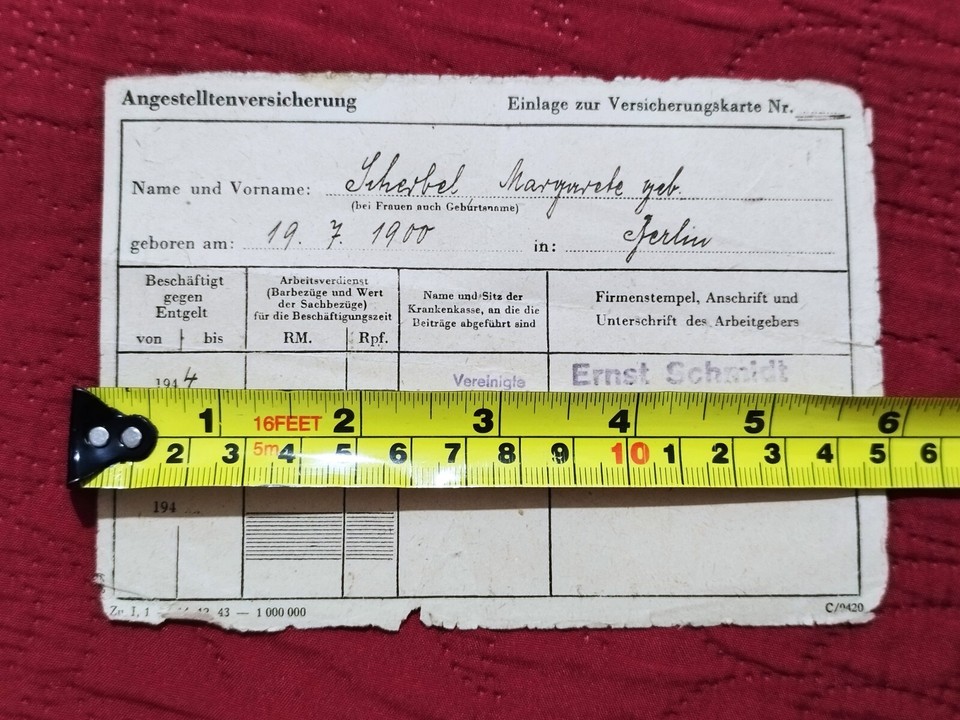 Angestelltenversicherung Einlage zur Versicherungskarte Nr.
Name und Vorname: Scherbel Margarete geb.
(bei Frauen auch Geburtsname)
geboren am: 19. 7. 1900 in: Berlin
Beschäftigt gegen Entgelt
von bis
Arbeitsverdienst
(Barbezüge und Wert
der Sachbezüge)
für die Beschäftigungszeit
RM. Rpf.
Name und Sitz der
Krankenkasse, an die die
Beiträge abgeführt sind
Firmenstempel, Anschrift und
Unterschrift des Arbeitgebers
1944 Vereinigte Ernst Schmidt
1 16FEET 2 3 4 5 6
2 3 5m 4 5 6 7 8 9 10 1 2 3 4 5 6
194
43 — 1 000 000 C/0420